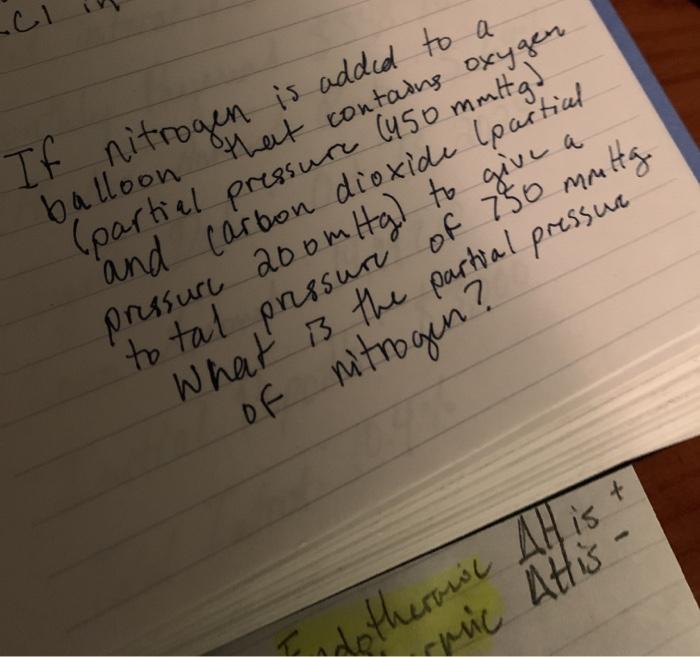 Cl in
If nitrogen is added to a
balloon that contains oxygen
(partial pressure (450 mmHg)
and carbon dioxide (partial
pressure 200mHg) to give a
total pressure of 750 mmHg.
What is the partial pressure
of nitrogen?
Endothermic ΔH is +
ΔH is -